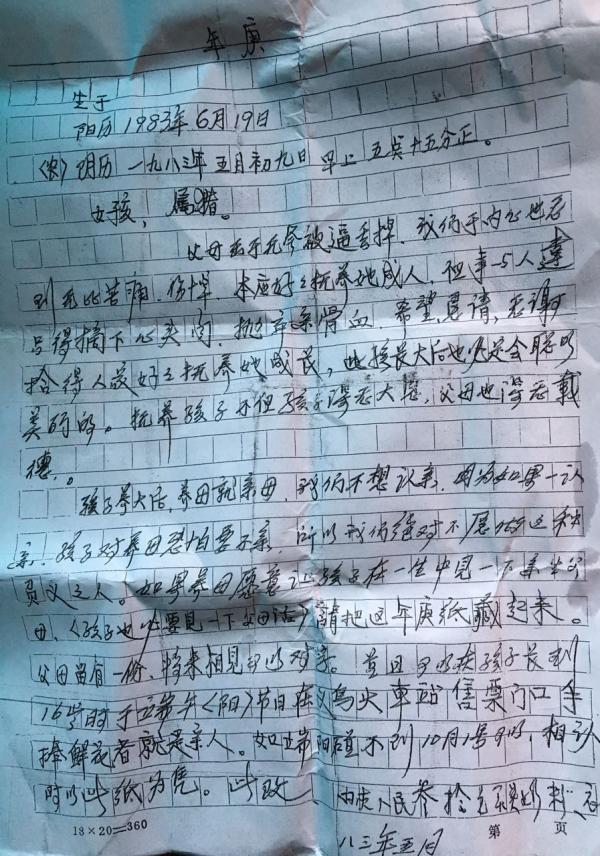 年庚
生于
阳历1983年6月19日
〈农〉阴历 一九八三年五月初九日 早上 五点十五分正。
女孩，属猪。
父母出于无奈被逼丢掉，我们于内心也感
到无比苦痛，伤悼，本应好之抚养她成人，但事与人违
只得摘下心头肉，抛弃亲骨血，希望，恳请，感谢
拾得人家好之抚养她成长，此孩长大后也必定会聪明
美的。抚养孩子不但孩子得感大恩，父母也得感戴
德。
孩子养大后，养母就亲母，我们不想认亲，因为如果一认
亲，孩子对养母恐怕要不亲，所以我们绝对不愿做这种
负义之人。如果养母愿意让孩子在一生中见一下亲生父
母，〈孩子也必要见一下父母话〉请把这年庚纸藏起来。
父母留有一份，将来相见可以对亲。并且可以候孩子长到
16岁时于五月〈阳〉节日在义乌火车站售票门口手
捧鲜花者就是亲人。如 阳 不到10月1号 ，相认
时以此纸为凭。此致 内夹人民叁拾元
八三年五月
18×20=360 第 页